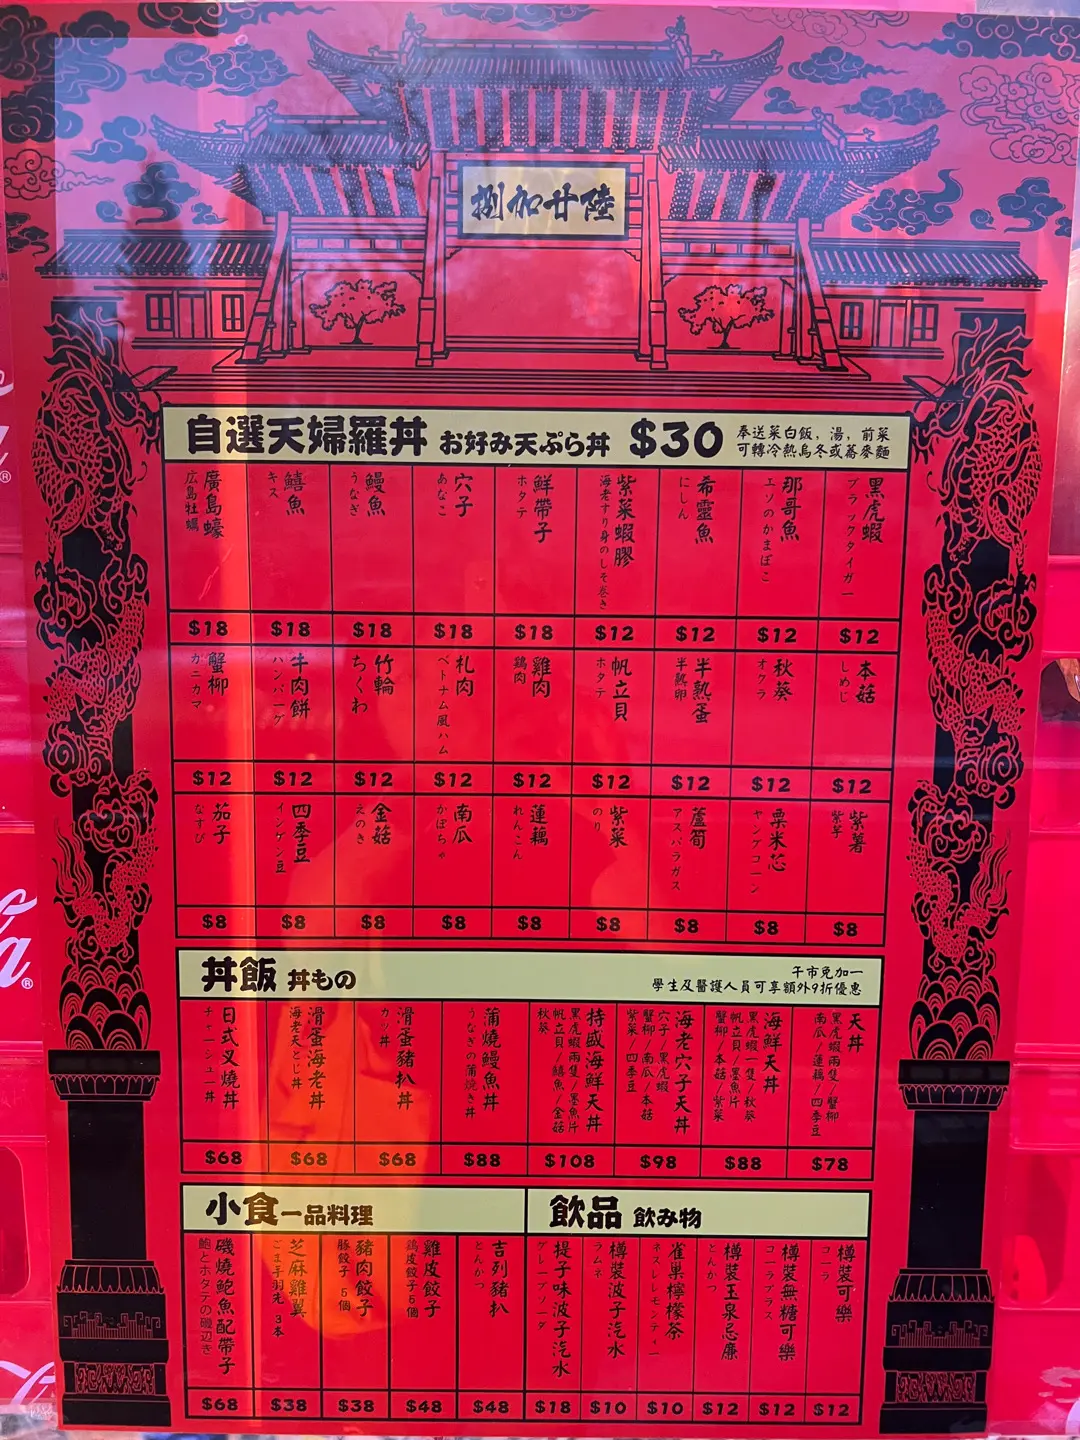 捌加廿陸
自選天婦羅丼 お好み天ぷら丼 $30
奉送菜白飯，湯，前菜
可轉冷熱烏冬或蕎麥麵
黑虎蝦
ブラックタイガー
$12
那哥魚
エソのかまぼこ
$12
希靈魚
にしん
$12
紫菜蝦膠
海老すり身のしそ巻き
$12
鮮帶子
ホタテ
$18
穴子
あなこ
$18
鰻魚
うなぎ
$18
鱚魚
キス
$18
廣島蠔
広島牡蠣
$18
本菇
しめじ
$12
秋葵
オクラ
$12
半熟蛋
半熟卵
$12
帆立貝
ホタテ
$12
雞肉
鶏肉
$12
札肉
ベトナム風ハム
$12
竹輪
ちくわ
$12
牛肉餅
ハンバーグ
$12
蟹柳
カニカマ
$12
紫薯
紫芋
$8
粟米芯
ヤングコーン
$8
蘆筍
アスパラガス
$8
紫菜
のり
$8
蓮藕
れんこん
$8
南瓜
かぼちゃ
$8
金菇
えのき
$8
四季豆
インゲン豆
$8
茄子
なすび
$8
丼飯 丼もの
午市免加一
學生及醫護人員可享額外9折優惠
天丼
黑虎蝦兩隻/蟹柳
南瓜/蓮藕/四季豆
$78
海鮮天丼
黑虎蝦一隻/秋葵
帆立貝/墨魚片
蟹柳/本菇/紫菜
$88
海老穴子天丼
穴子/黑虎蝦
蟹柳/南瓜/本菇
紫菜/四季豆
$98
特盛海鮮天丼
黑虎蝦兩隻/墨魚片
帆立貝/鱚魚/金菇
秋葵
$108
蒲燒鰻魚丼
うなぎの蒲焼き丼
$88
滑蛋豬扒丼
カツ丼
$68
滑蛋海老丼
海老天とじ丼
$68
日式叉燒丼
チャーシュー丼
$68
小食 一品料理
吉列豬扒
とんかつ
$48
雞皮餃子
鶏皮餃子5個
$48
豬肉餃子
豚餃子 5個
$38
芝麻雞翼
ごま手羽先 3本
$38
磯燒鮑魚配帶子
鮑とホタテの磯辺き
$68
飲品 飲み物
樽裝可樂
コーラ
$12
樽裝無糖可樂
コーラプラス
$12
樽裝玉泉忌廉
とんかつ
$12
雀巢檸檬茶
ネスレレモンティー
$10
樽裝波子汽水
ラムネ
$10
提子味波子汽水
グレープソーダ
$18